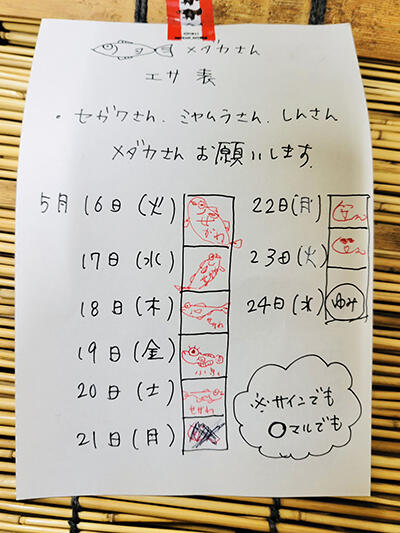 メダカさん
エサ 表
・セガワさん、ミヤムラさん、しんさん
メダカさん お願いします。
5月 16日(火) せがわ
17日(水)
18日(木)
19日(金)
20日(土) せがわ
21日(月)
22日(月)
23日(火)
24日(水) ゆみ
※サインでも
○マルでも